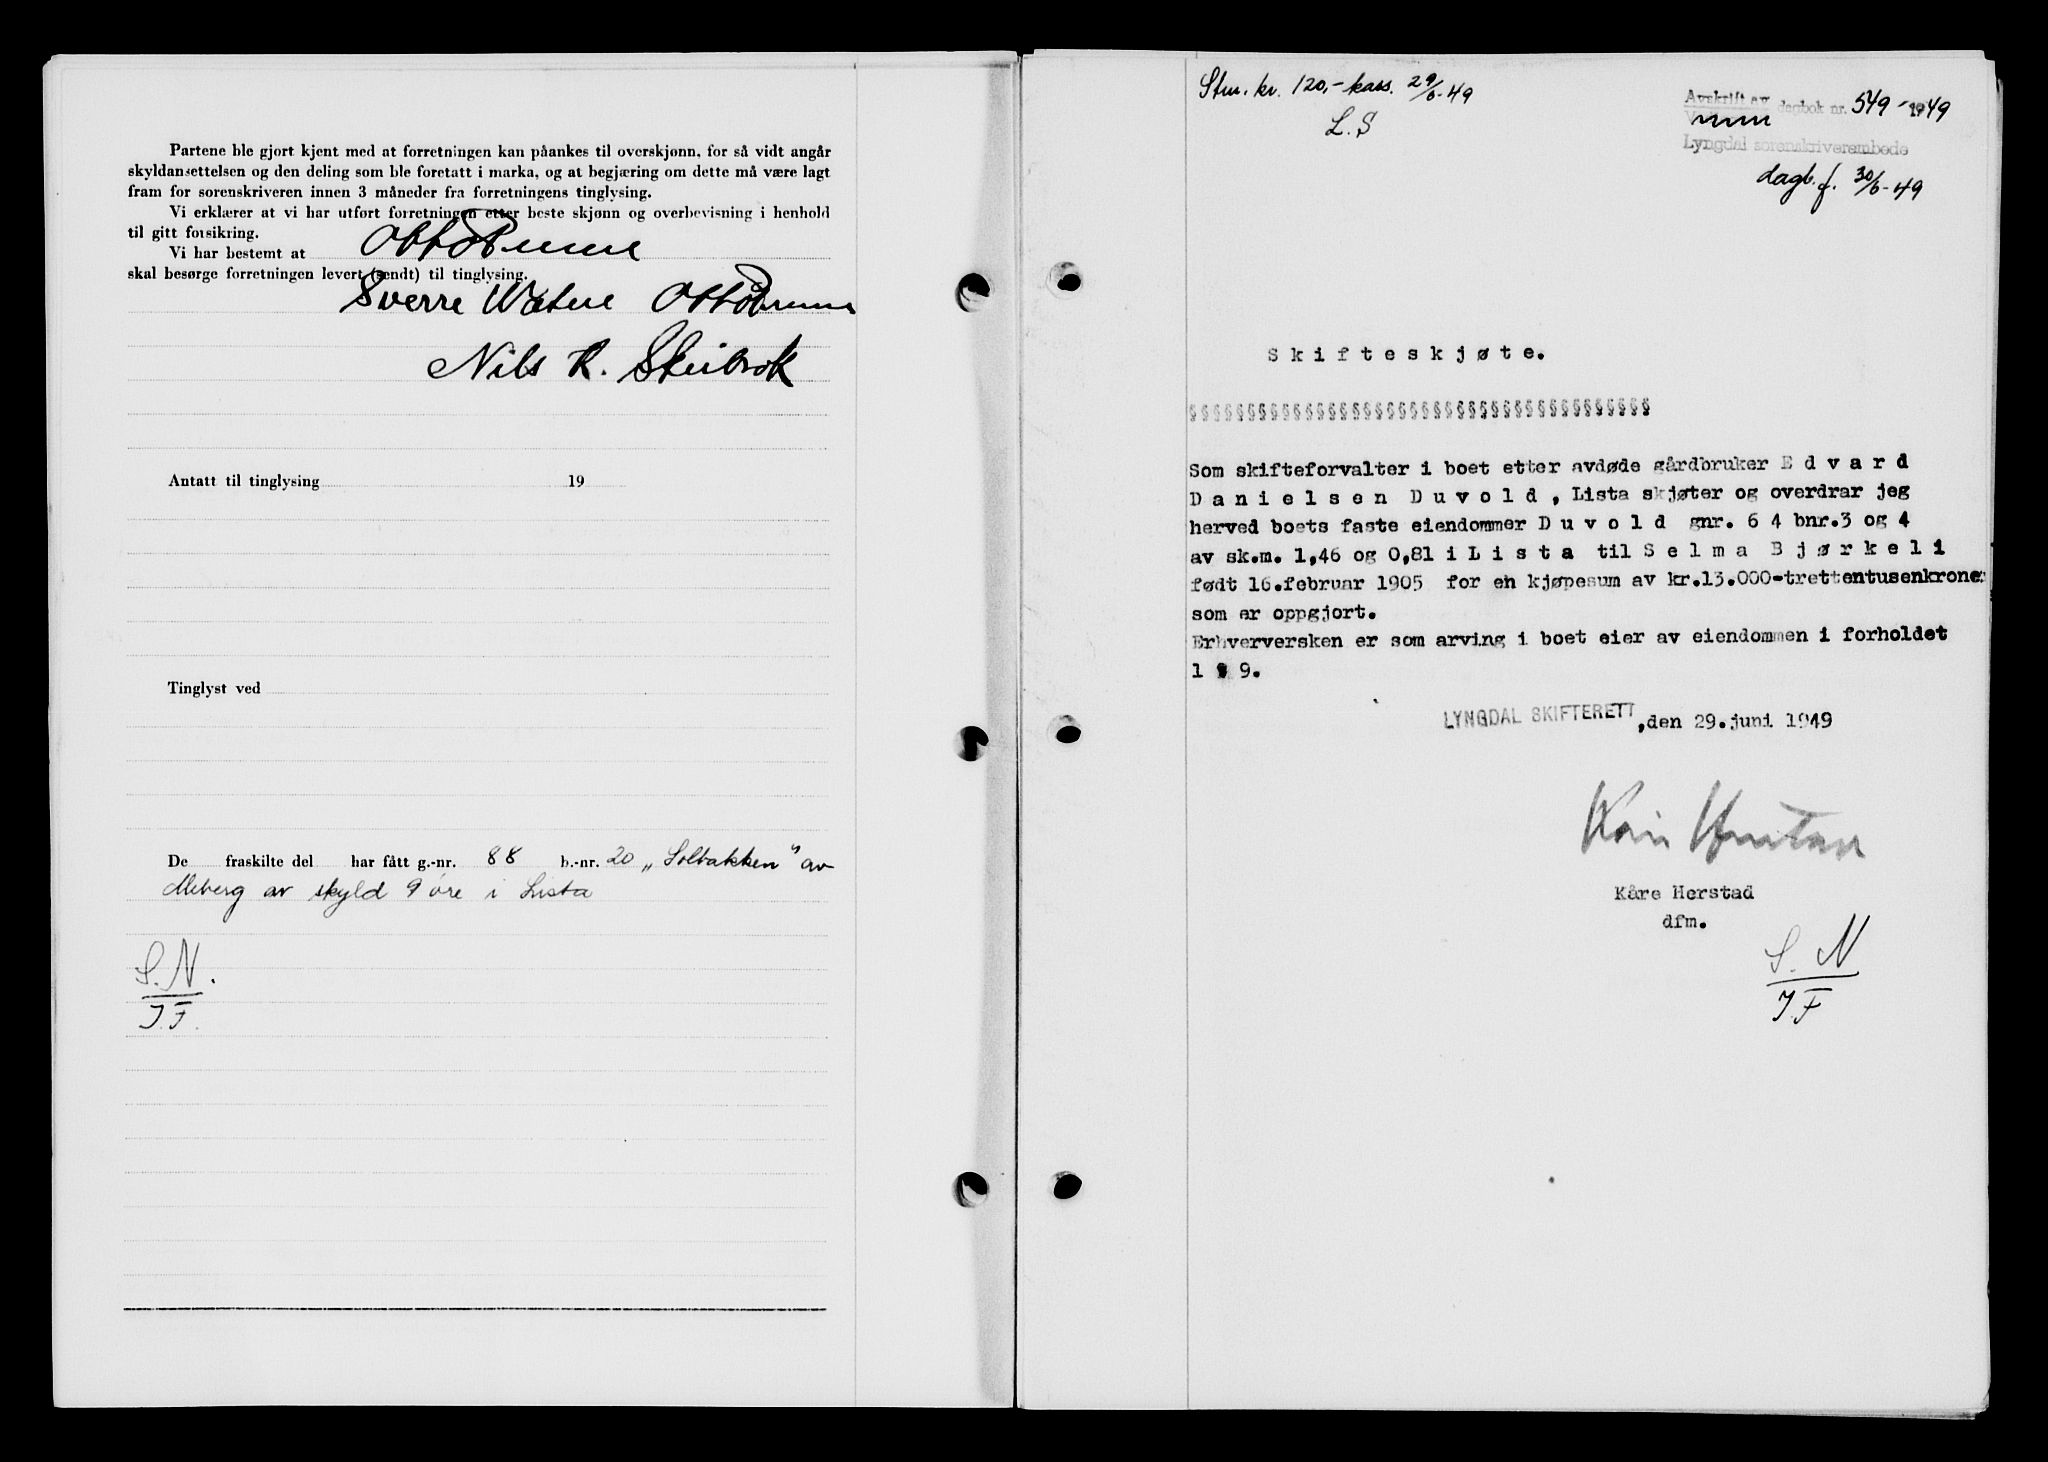 Partene ble gjort kjent med at forretningen kan påankes til overskjønn, for så vidt angår
skyldansettelsen og den deling som ble foretatt i marka, og at begjæring om dette må være lagt
fram for sorenskriveren innen 3 måneder fra forretningens tinglysing.
Vi erklærer at vi har utført forretningen etter beste skjønn og overbevisning i henhold
til gitt forsikring.
Vi har bestemt at Otto
skal besørge forretningen levert (sendt) til tinglysing.
Sverre Otto
Nils R. Skeibrok
Antatt til tinglysing 19
Tinglyst ved
De fraskilte del har fått g.-nr. 88 b.-nr. 20 „Solbakken" av
Meberg av skyld 9 øre i Lista
S.N.
J.F.
Stm. kr. 120,- kass. 29/6-49
L.S
Avskrift av dagbok nr. 549 - 1949
Lyngdal sorenskriverembede
dagb.f. 30/6-49
Skifteskjøte.
§§§§§§§§§§§§§§§§§§§§§§§§§§§§§§§§§§§§§§§§
Som skifteforvalter i boet etter avdøde gårdbruker Edvard
Danielsen Duvold, Lista skjøter og overdrar jeg
herved boets faste eiendommer Duvold gnr. 64 bnr.3 og 4
av sk.m. 1,46 og 0,81 i Lista til Selma Bjørkeli
født 16.februar 1905 for en kjøpesum av kr.13.000-trettentusenkroner
som er oppgjort.
Erhververvsken er som arving i boet eier av eiendommen i forholdet
1 9.
LYNGDAL SKIFTERETT ,den 29.juni 1949
Kåre Herstad
Kåre Herstad
dfm.
S. N
J.F